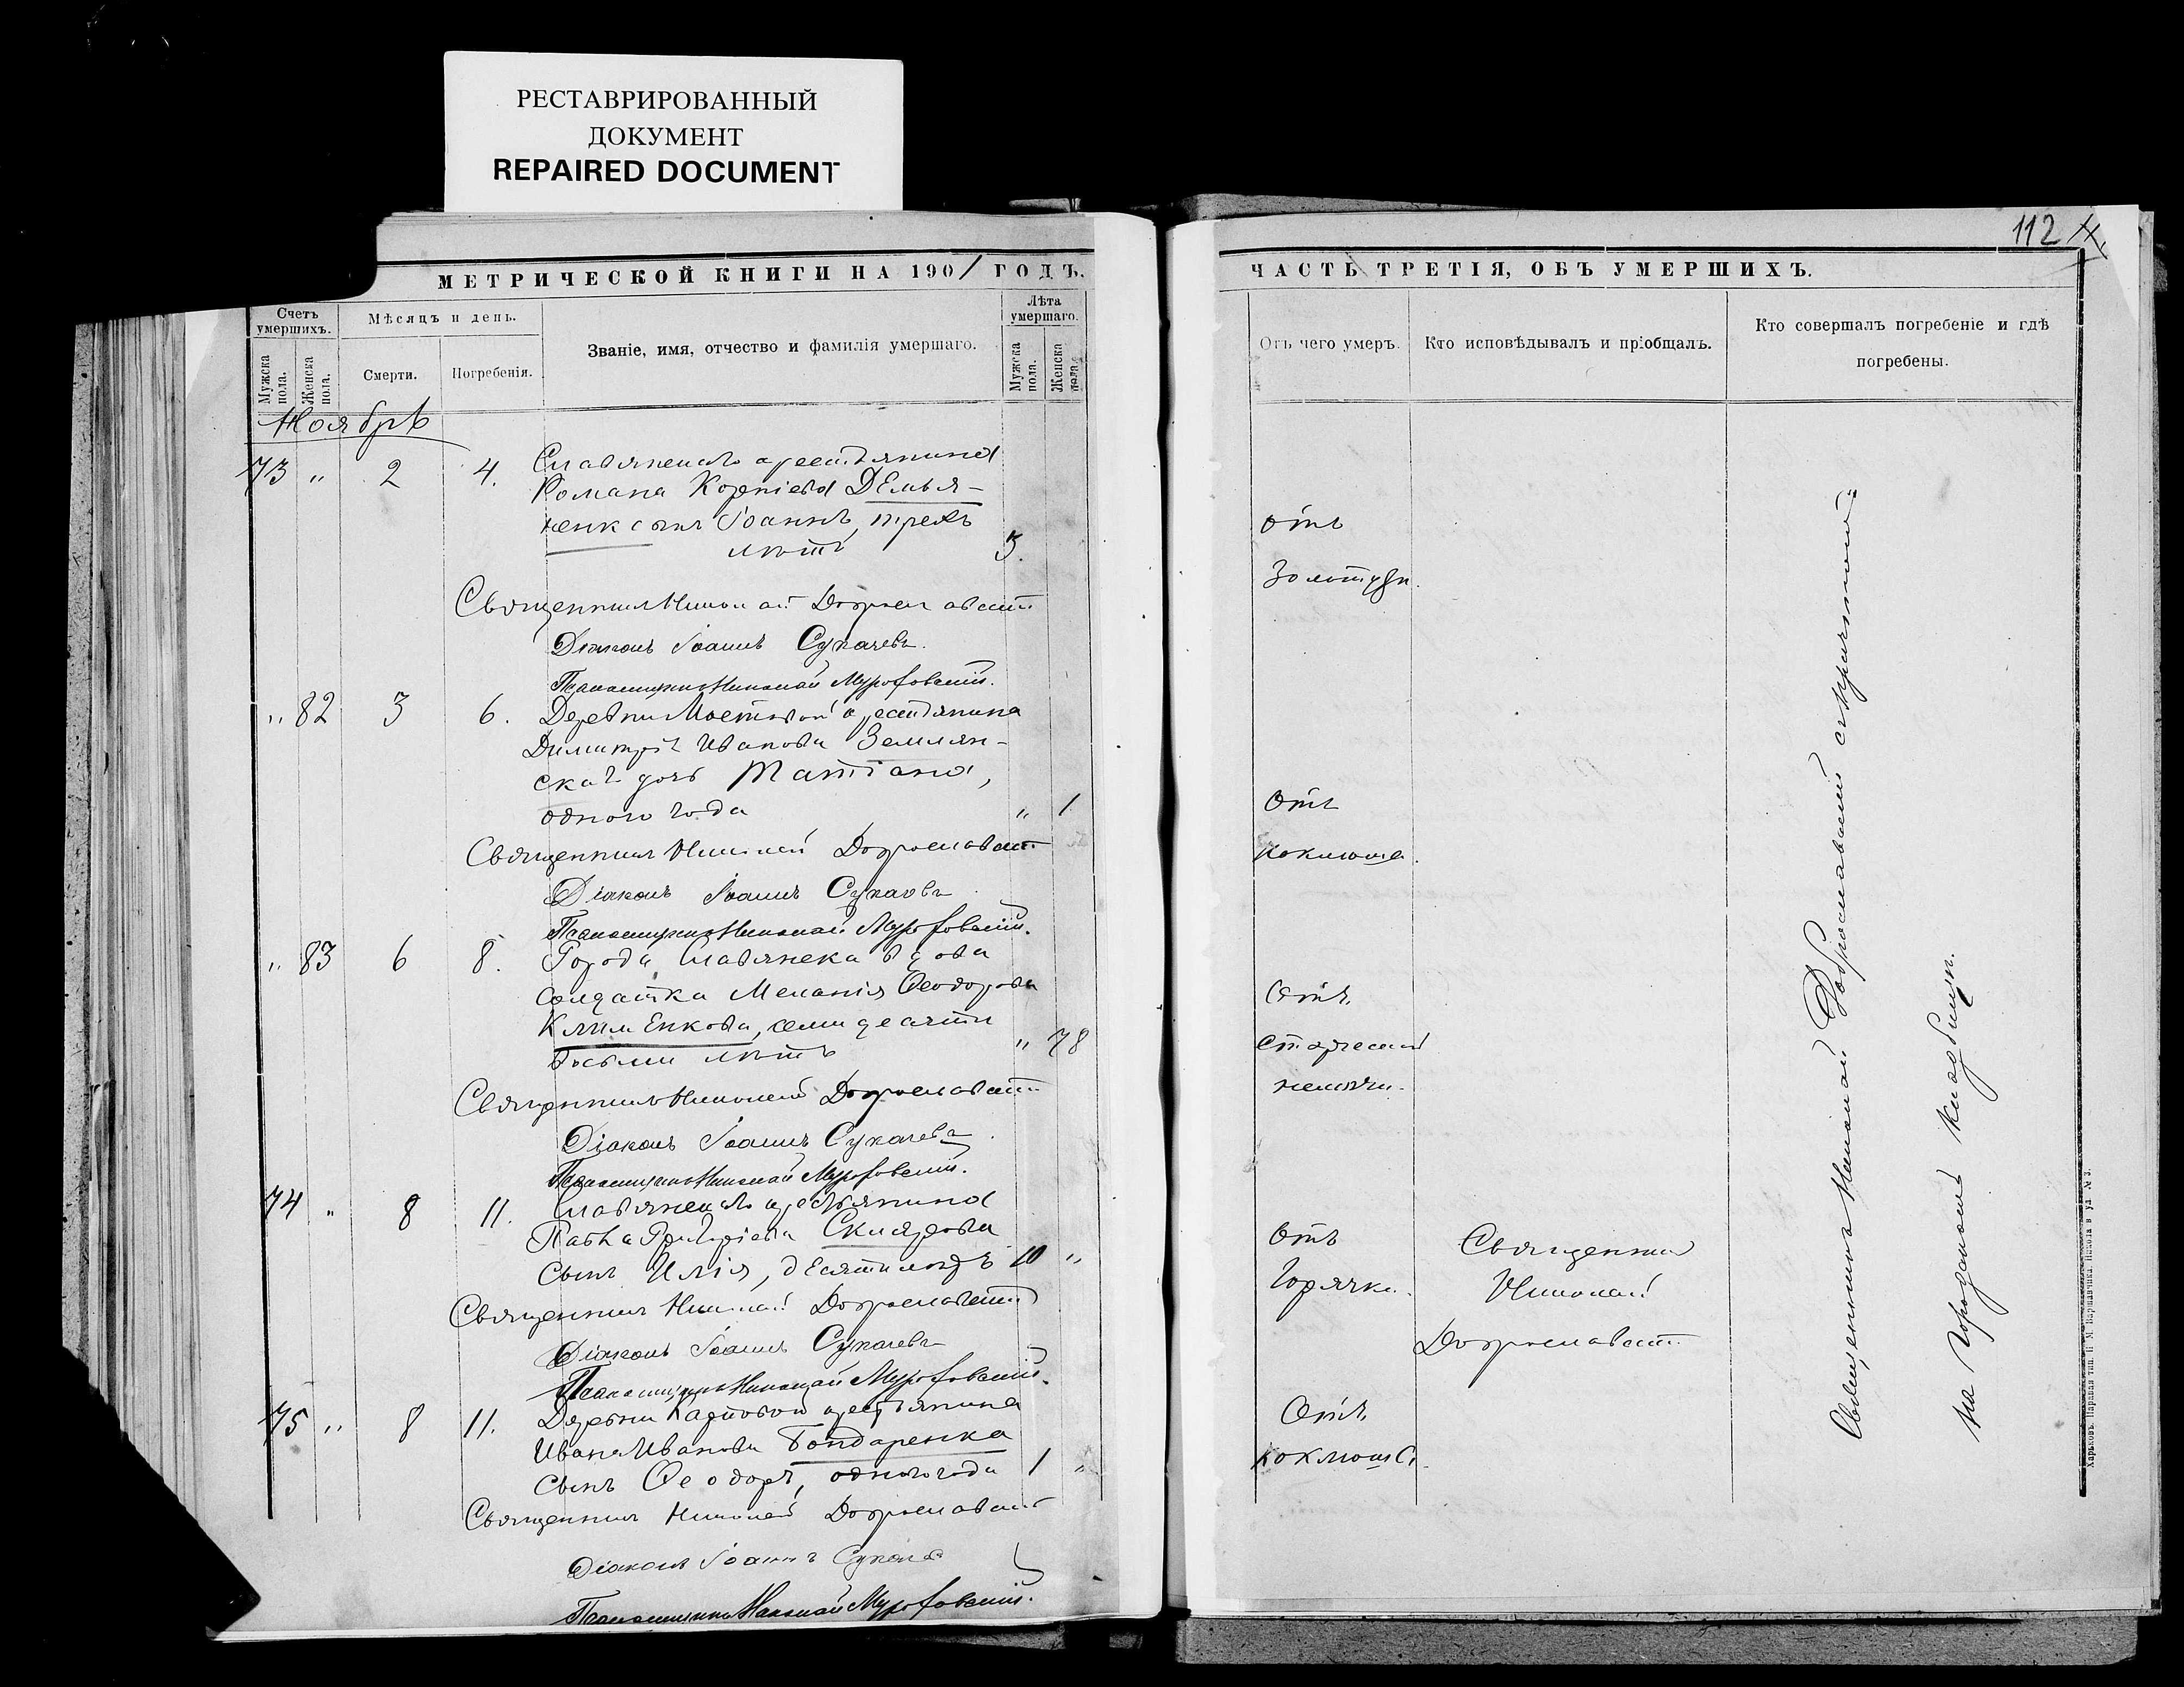 РЕСТАВРИРОВАННЫЙ
ДОКУМЕНТ
REPAIRED DOCUMENT
112
МЕТРИЧЕСКОЙ КНИГИ НА 1901 ГОДЪ.
Счетъ умершихъ.
Мужска пола.
Женска пола.
Мѣсяцъ и день.
Смерти.
Погребенія.
Званіе, имя, отчество и фамилія умершаго.
Лѣта умершаго.
Мужска пола.
Женска пола.
Ноябрь
73 " 2 4. Славянскаго крестьянина
Романа Корніева Демья-
ненк сынъ Іоаннъ, трехъ
лѣтъ 3.
Священникъ Николай Доброславскій
Діаконъ Іоаннъ Сукачевъ.
Псаломщикъ Николай
" 82 3 6. Деревни Мостовой крестьянина
Димитрія Иванова Землян-
скаго дочь Татіана,
одного года " 1
Священникъ Николай Доброславскій
Діаконъ Іоаннъ Сукачевъ
Псаломщикъ Николай
" 83 6 8. Города Славянска вдова
солдатка Меланія Ѳеодорова
Клименкова, семидесяти
восьми лѣтъ " 78
Священникъ Николай Доброславскій
Діаконъ Іоаннъ Сукачевъ
Псаломщикъ Николай
74 " 8 11. Славянскаго крестьянина
Павла Григоріева Склярова
сынъ Илія, десяти лѣтъ 10 "
Священникъ Николай Доброславскій
Діаконъ Іоаннъ Сукачевъ
Псаломщикъ Николай
75 " 8 11. Деревни Карповой крестьянина
Ивана Иванова Бондаренка
сынъ Ѳеодоръ, одного года 1 "
Священникъ Николай Доброславскій
Діаконъ Іоаннъ Сукачевъ
Псаломщикъ Николай
ЧАСТЬ ТРЕТІЯ, ОБЪ УМЕРШИХЪ.
Отъ чего умеръ.
Кто исповѣдывалъ и пріобщалъ.
Кто совершалъ погребеніе и гдѣ
погребены.
отъ
золотухи.
отъ
коклюша.
Отъ
старческой
немочи.
Отъ
горячки.
Священникъ
Николай
Доброславскій
Отъ
коклюша.
Священникъ Николай Доброславскій съ причтомъ
на городскомъ кладбищѣ.